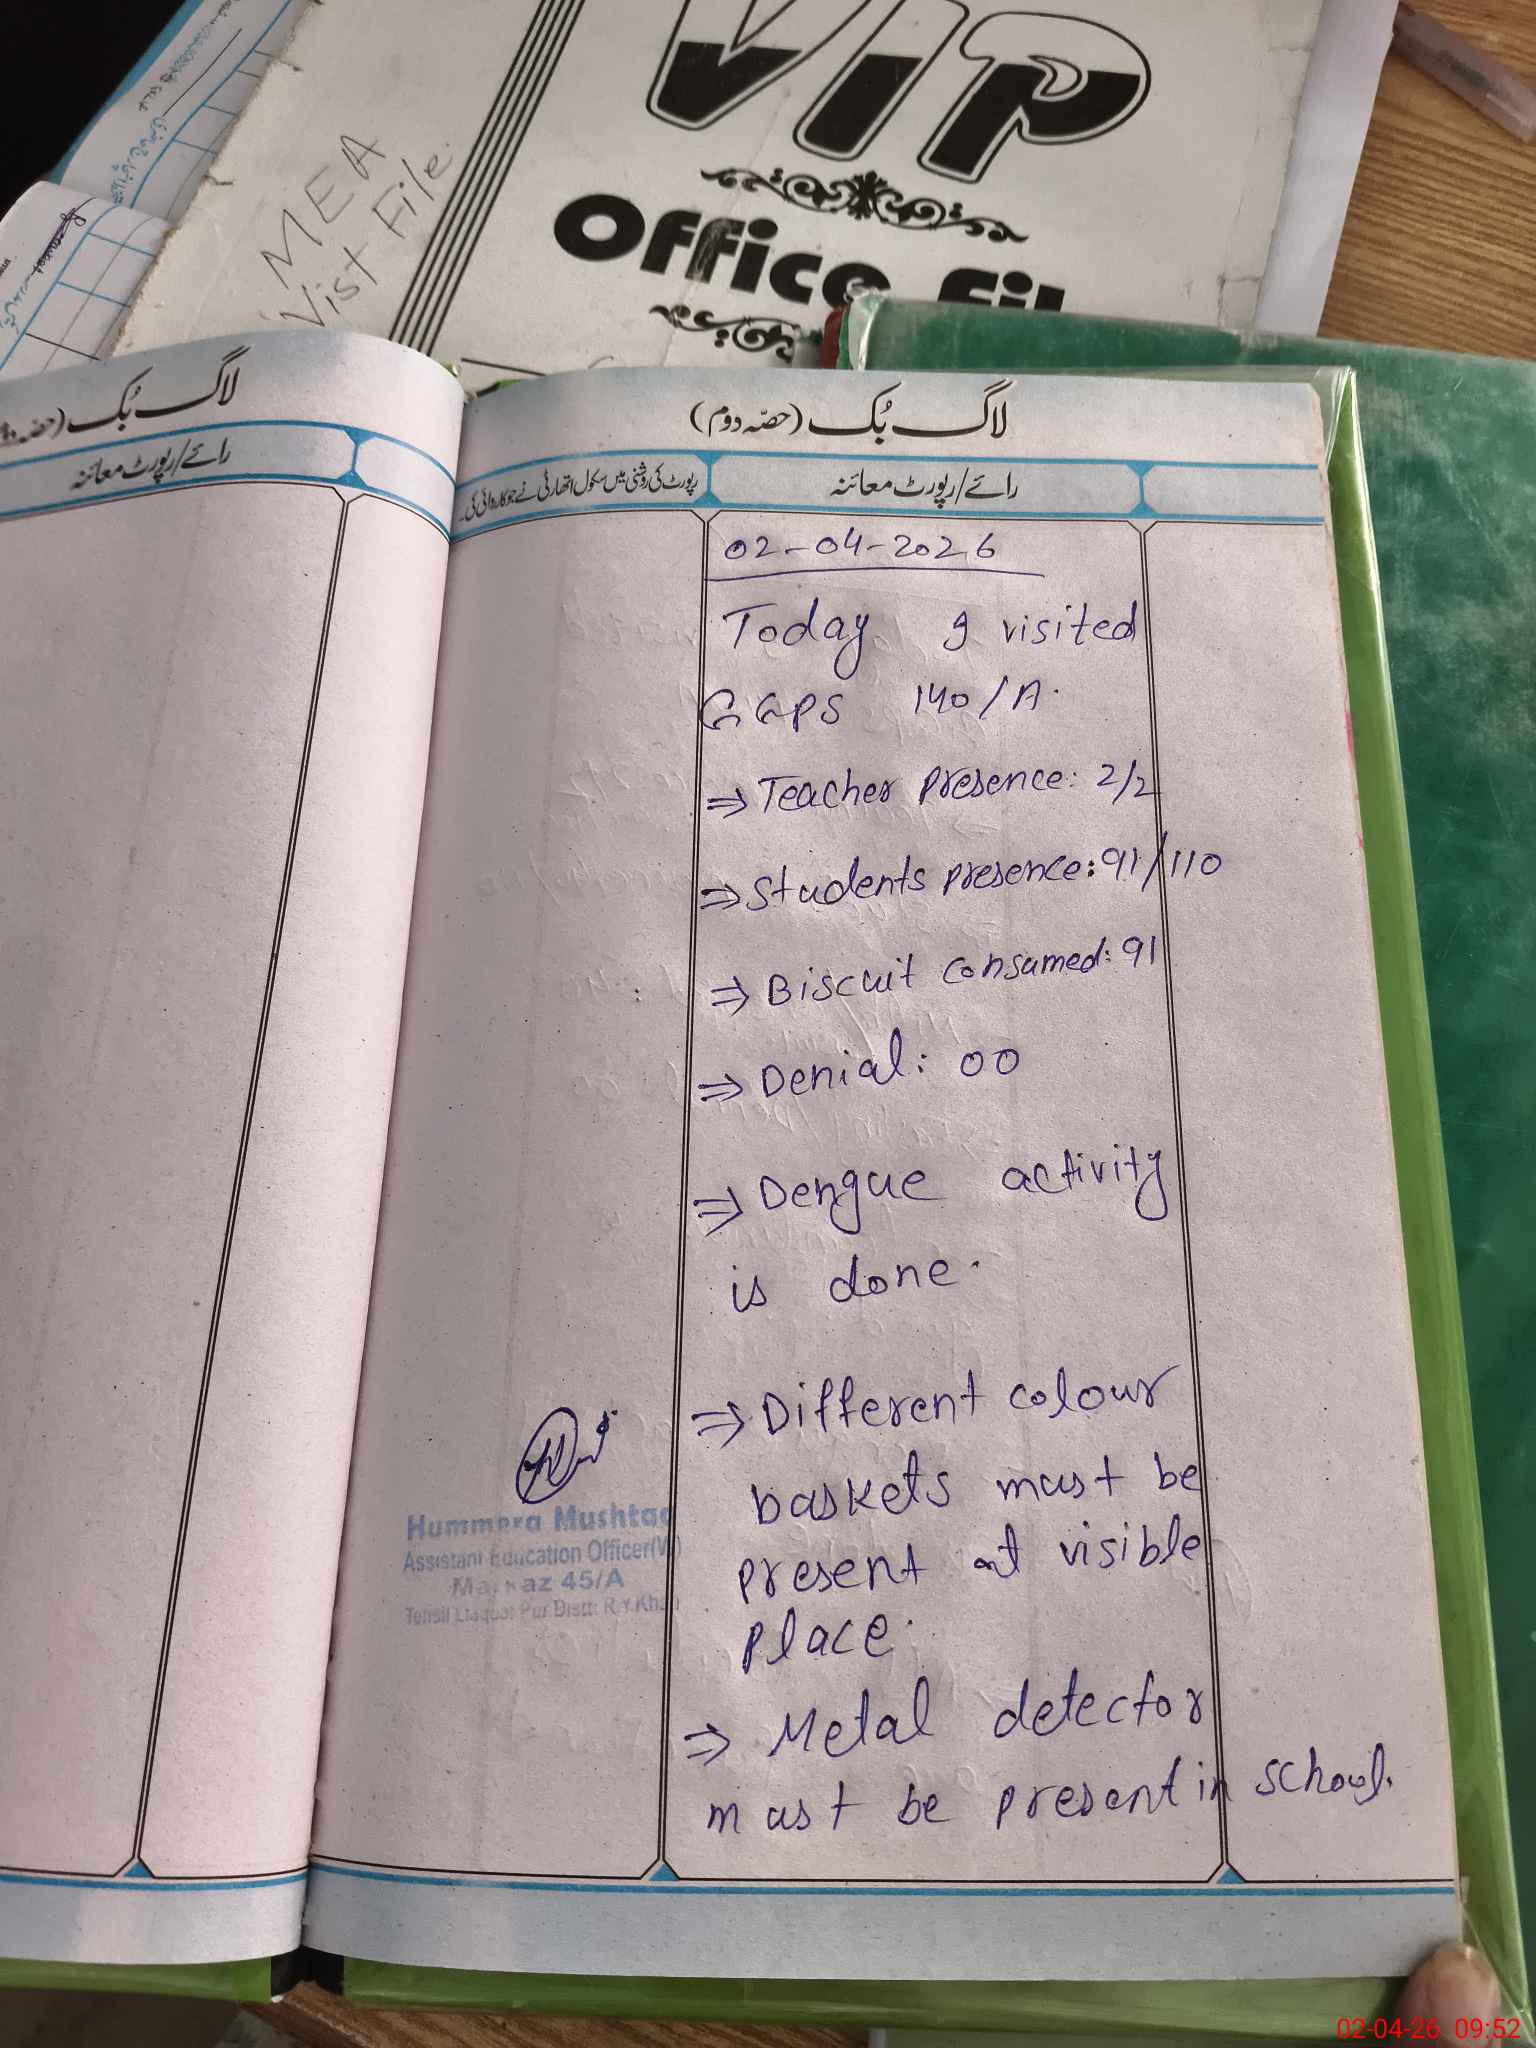 VIP
Office Fil
MEA
Vist File.
لاگ بُک (حصّہ
رائے/رپورٹ معائنہ
لاگ بُک (حصّہ دوم)
رائے/رپورٹ معائنہ
رپورٹ کی روشنی میں سکول اتھارٹی نے جو کاروائی کی۔
02-04-2026
Today I visited
GGPS 140/A.
⇒ Teacher presence: 2/2
⇒ Students presence: 91/110
⇒ Biscuit consumed: 91
⇒ Denial: 00
⇒ Dengue activity
is done.
⇒ Different colour
baskets must be
present at visible
place.
⇒ Metal detector
must be present in school.
Hummera Mushtaq
Assistant Education Officer(W)
Markaz 45/A
Tehsil Liaquat Pur Distt: R.Y.Khan
02-04-26 09:52